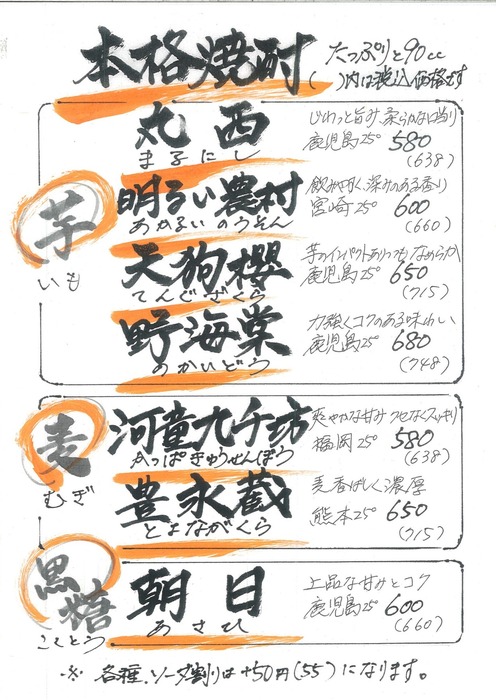 本格焼酎
たっぷりと90cc
( )内は税込価格です
芋
いも
丸西
まるにし
じわっと旨み、柔らかな口当り
鹿児島25° 580
(638)
明るい農村
あかるいのうそん
飲み易く、深みのある香り
宮崎25° 600
(660)
天狗櫻
てんぐざくら
芋のインパクトありつつもなめらか
鹿児島25° 650
(715)
野海棠
のかいどう
力強くコクのある味わい
鹿児島25° 680
(748)
麦
むぎ
河童九千坊
かっぱきゅうせんぼう
爽やかな甘み クセなくスッキリ
福岡25° 580
(638)
豊永蔵
とよながくら
麦香ばしく濃厚
熊本25° 650
(715)
黒糖
こくとう
朝日
あさひ
上品な甘みとコク
鹿児島25° 600
(660)
※ 各種、ソーダ割りは+50円(55)になります。